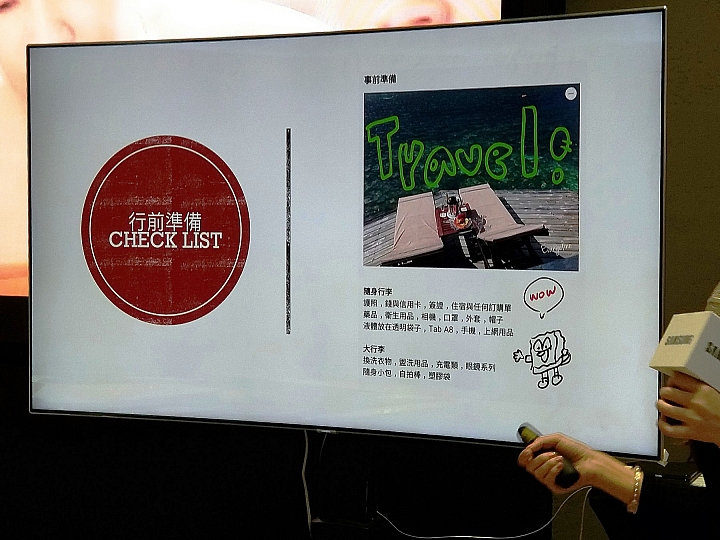 行前準備
CHECK LIST
事前準備
Travel!
隨身行李
護照，錢與信用卡，簽證，住宿與任何訂購單
藥品，衛生用品，相機，口罩，外套，帽子
液體放在透明袋子，Tab A8，手機，上網用品
WOW
大行李
換洗衣物，盥洗用品，充電類，眼鏡系列
隨身小包，自拍棒，塑膠袋
SAMSUNG